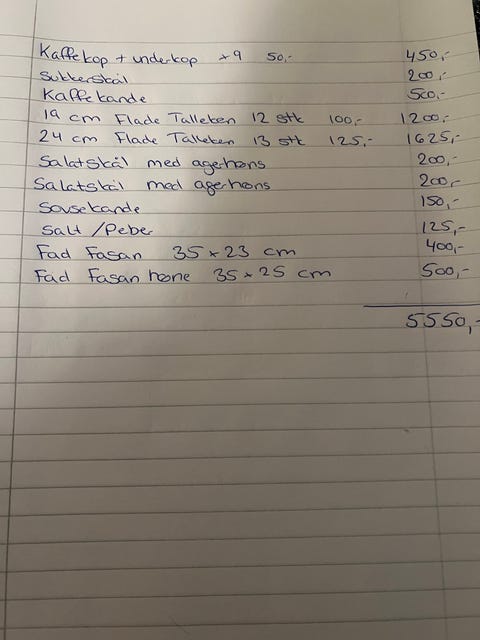 Kaffekop + underkop *9 50,- 450,-
Sukkerskål 200,-
Kaffekande 500,-
19 cm Flade Talleken 12 stk 100,- 1200,-
24 cm Flade Talleken 13 stk 125,- 1625,-
Salatskål med agerhøns 200,-
Salatskål med agerhøns 200,-
Sovsekande 150,-
Salt /Peber 125,-
Fad Fasan 35 * 23 cm 400,-
Fad Fasan høne 35 * 25 cm 500,-
5550,-